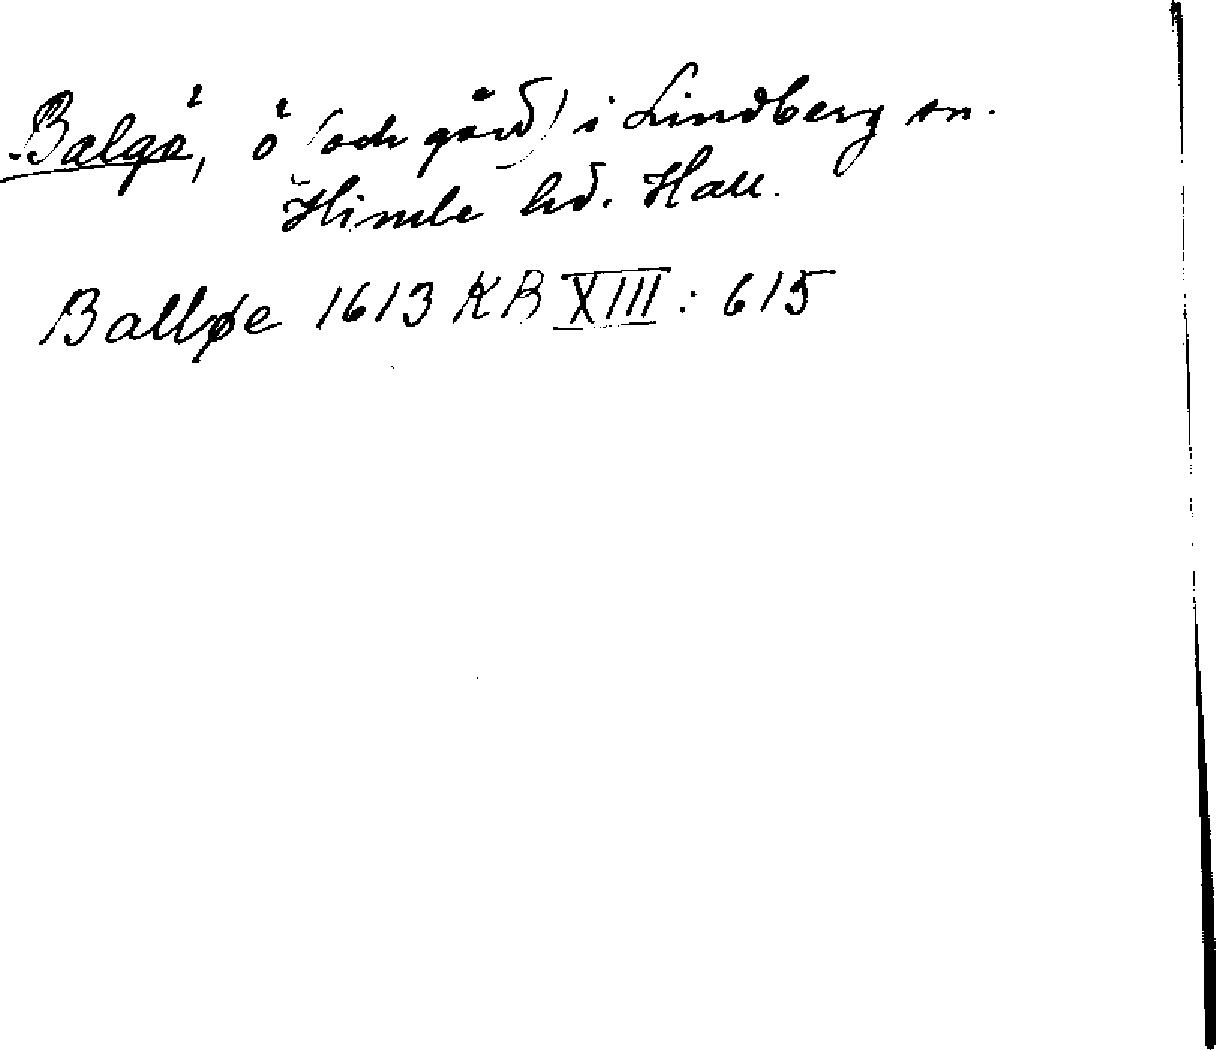 Balgö, ö (och gård) i Lindberg sn.
Himle hd. Hall.
Balløe 1613 KB XIII: 615